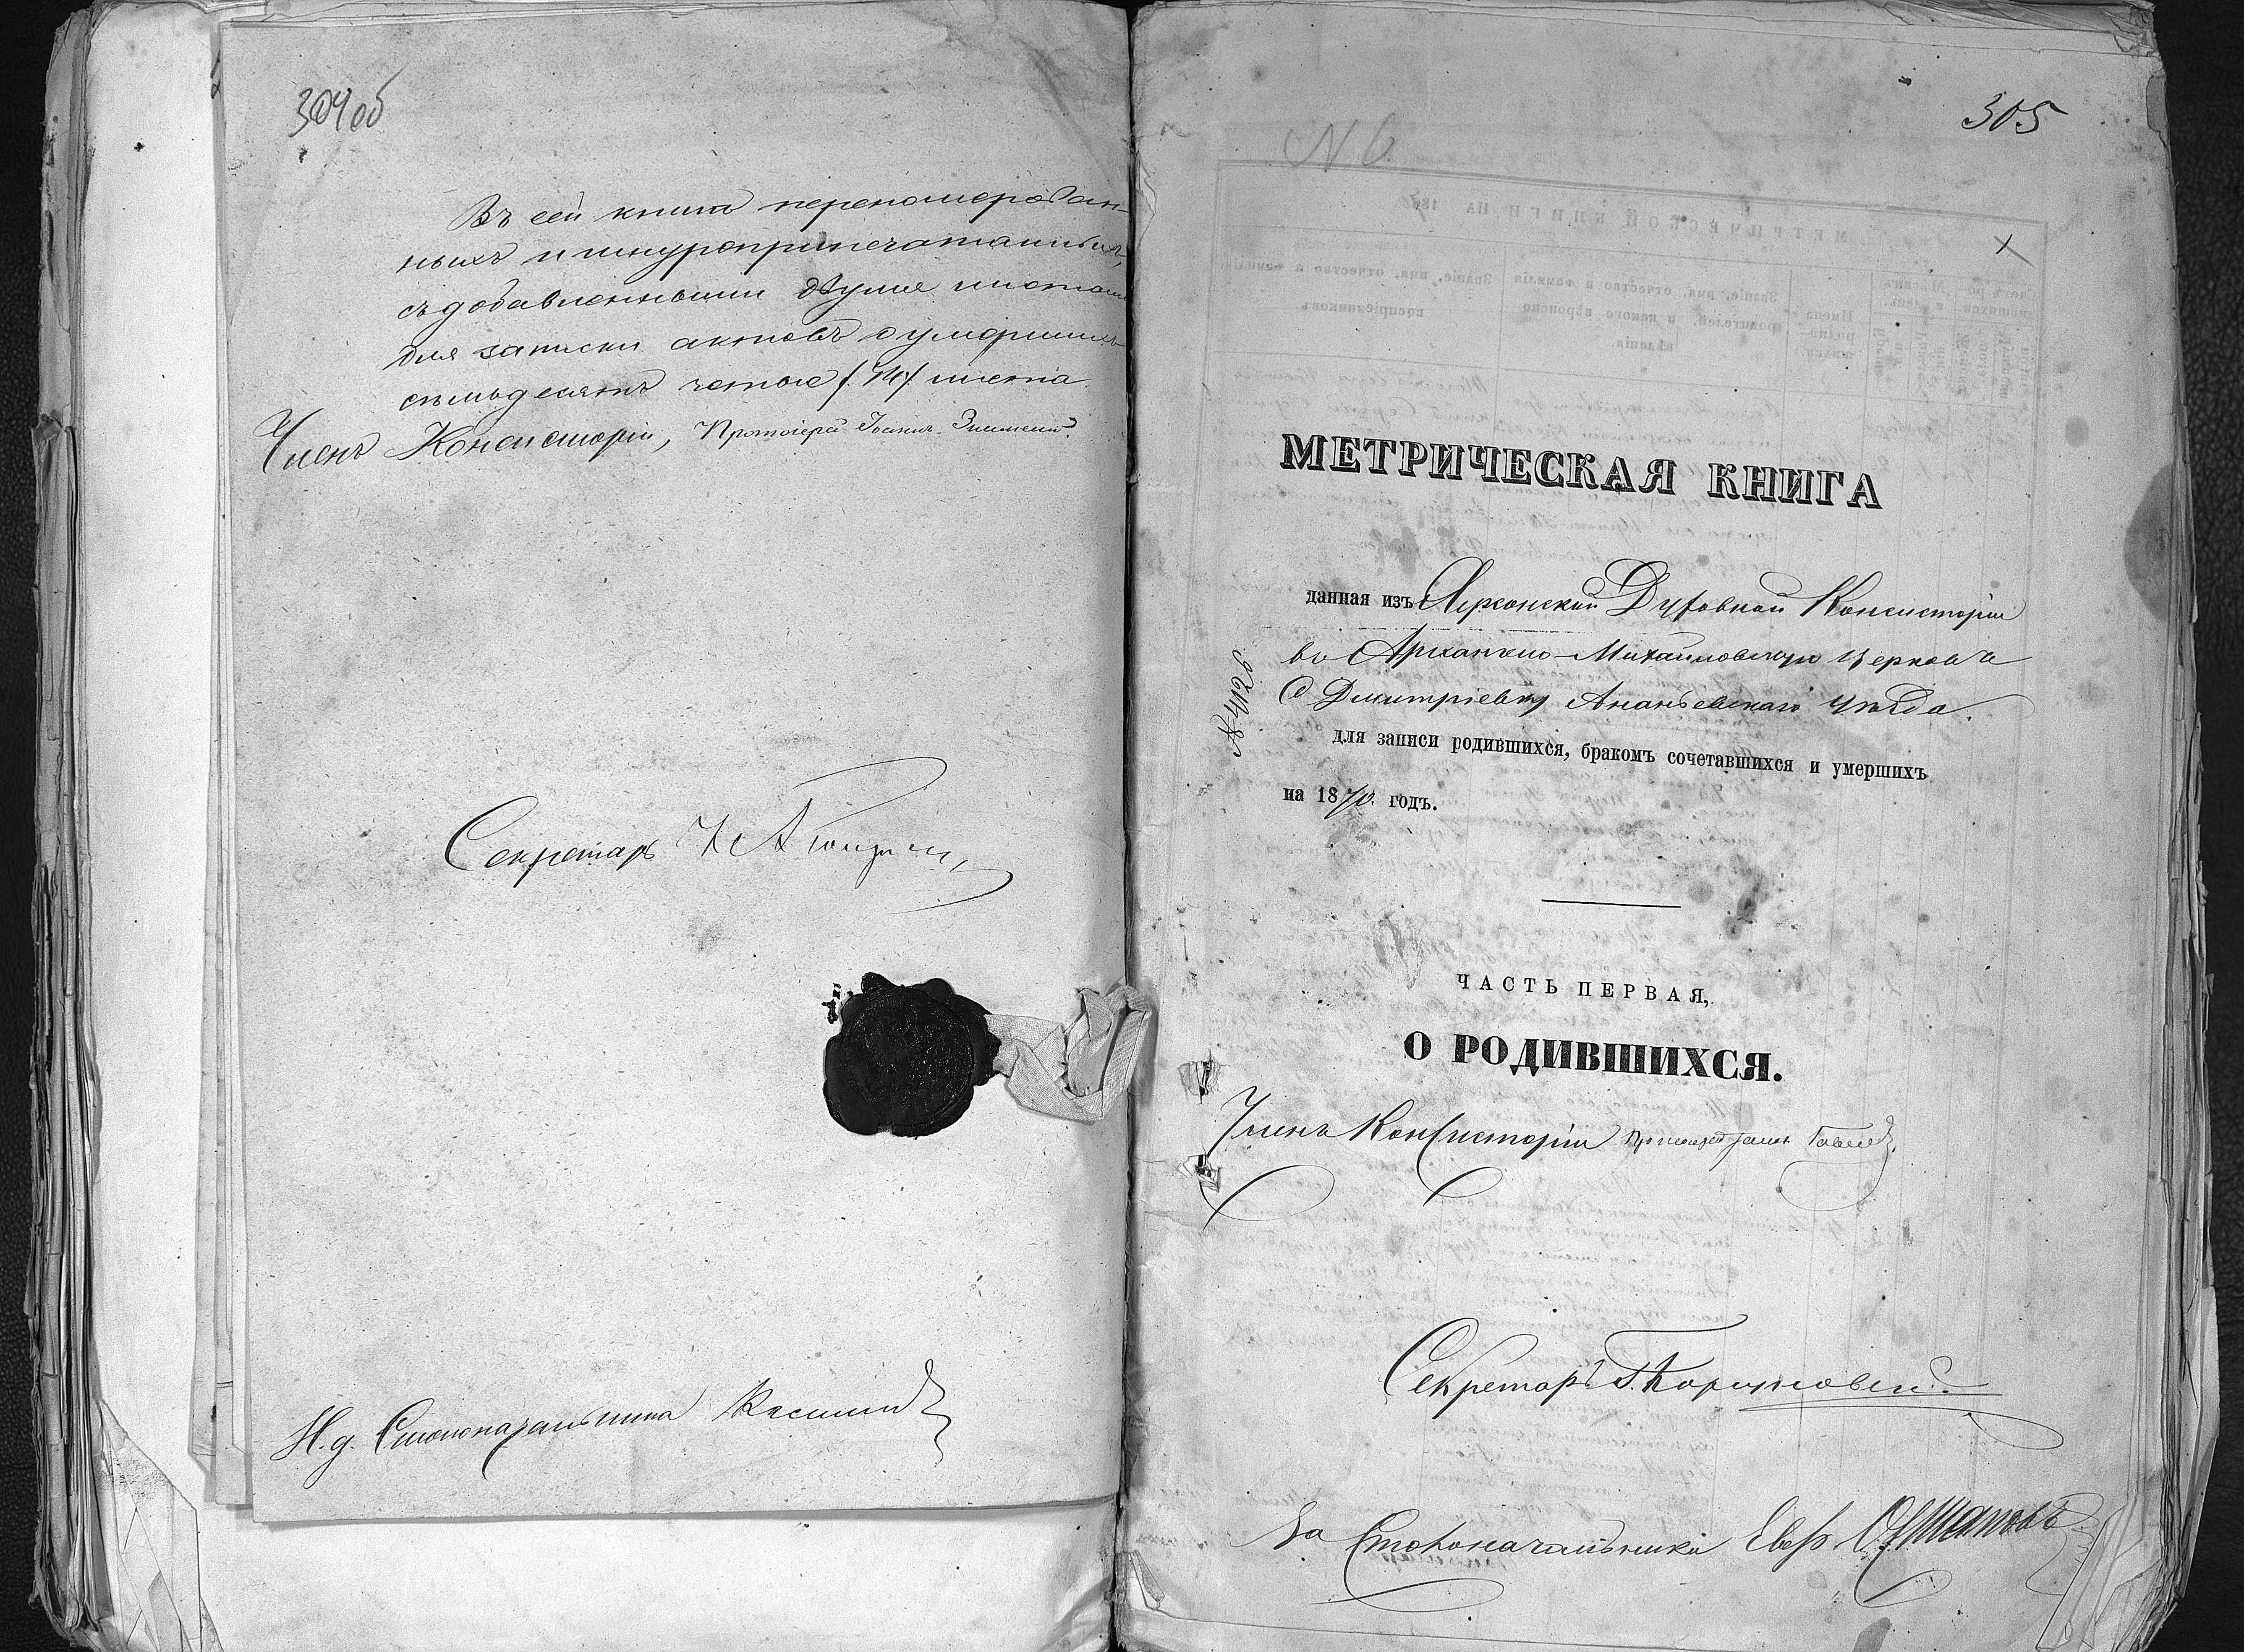 304об
Въ сей книгѣ перепомерован-
ныхъ и шнуроприпечатанныхъ,
съ добавленными двумя листами
для записки актовъ о умершихъ
семьдесятъ четыре /74/ листа
Членъ Консисторіи, Протоіерей Іоаннъ
Секретарь
И.д. Столоначальника
305
N 6
МЕТРИЧЕСКАЯ КНИГА
данная изъ Херсонской Духовной Консисторіи
въ Архангело-Михайловскую церковь
с Дмитріевку Ананьевскаго уѣзда.
для записи родившихся, бракомъ сочетавшихся и умершихъ
на 1870. годъ.
ЧАСТЬ ПЕРВАЯ,
О РОДИВШИХСЯ.
Членъ Консисторіи Протоіерей
Секретарь
За Столоначальника